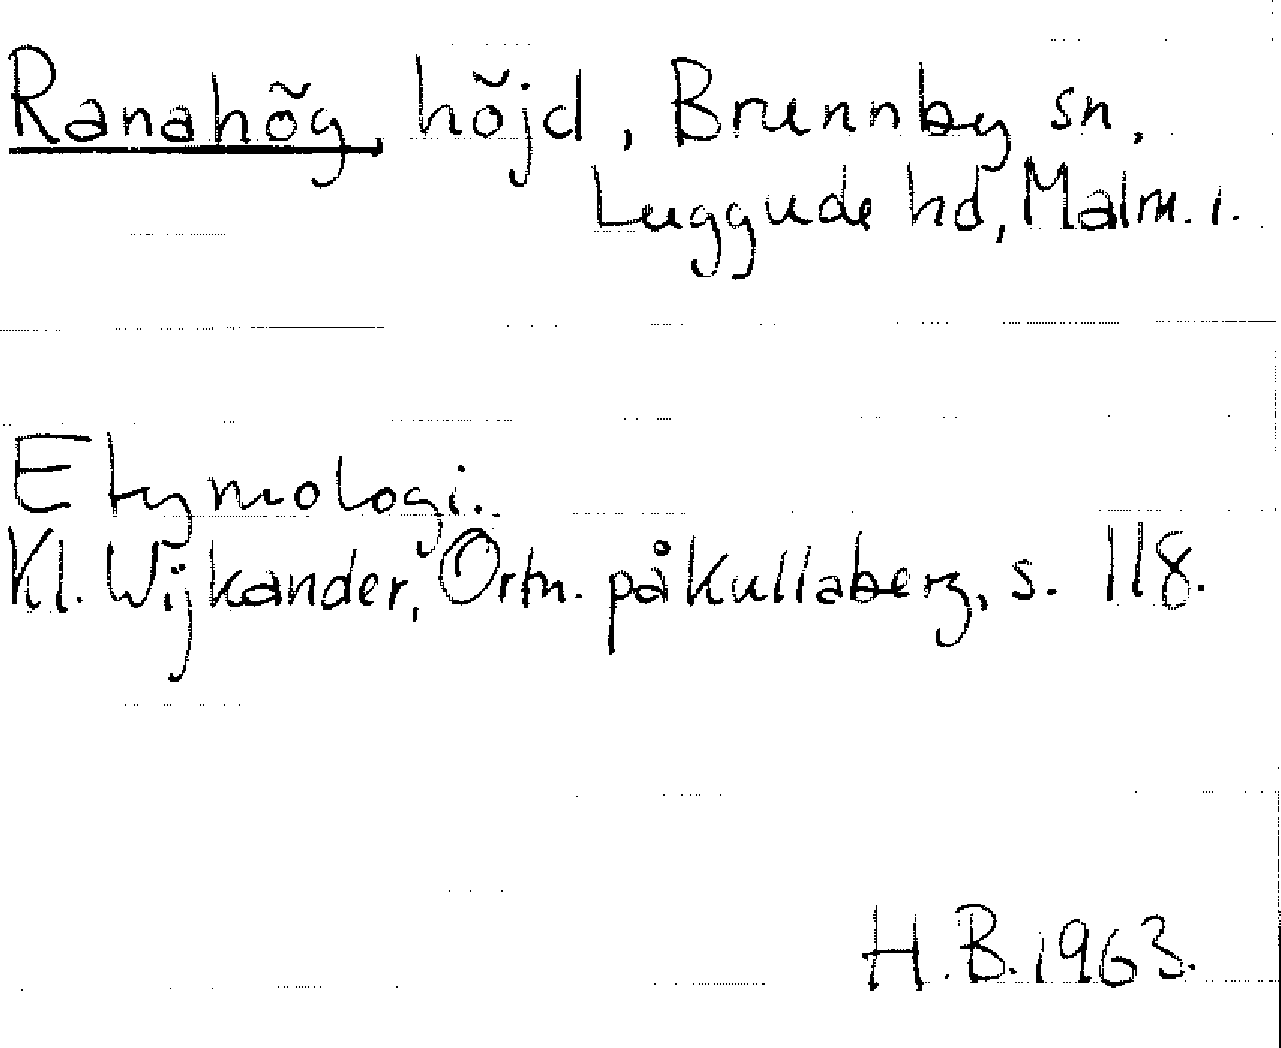 Ranahög, höjd, Brunnby sn,
Luggude hd, Malm. l.
Etymologi.
Kl. Wijkander, Ortn. på Kullaberg, s. 118.
H. B. 1963.